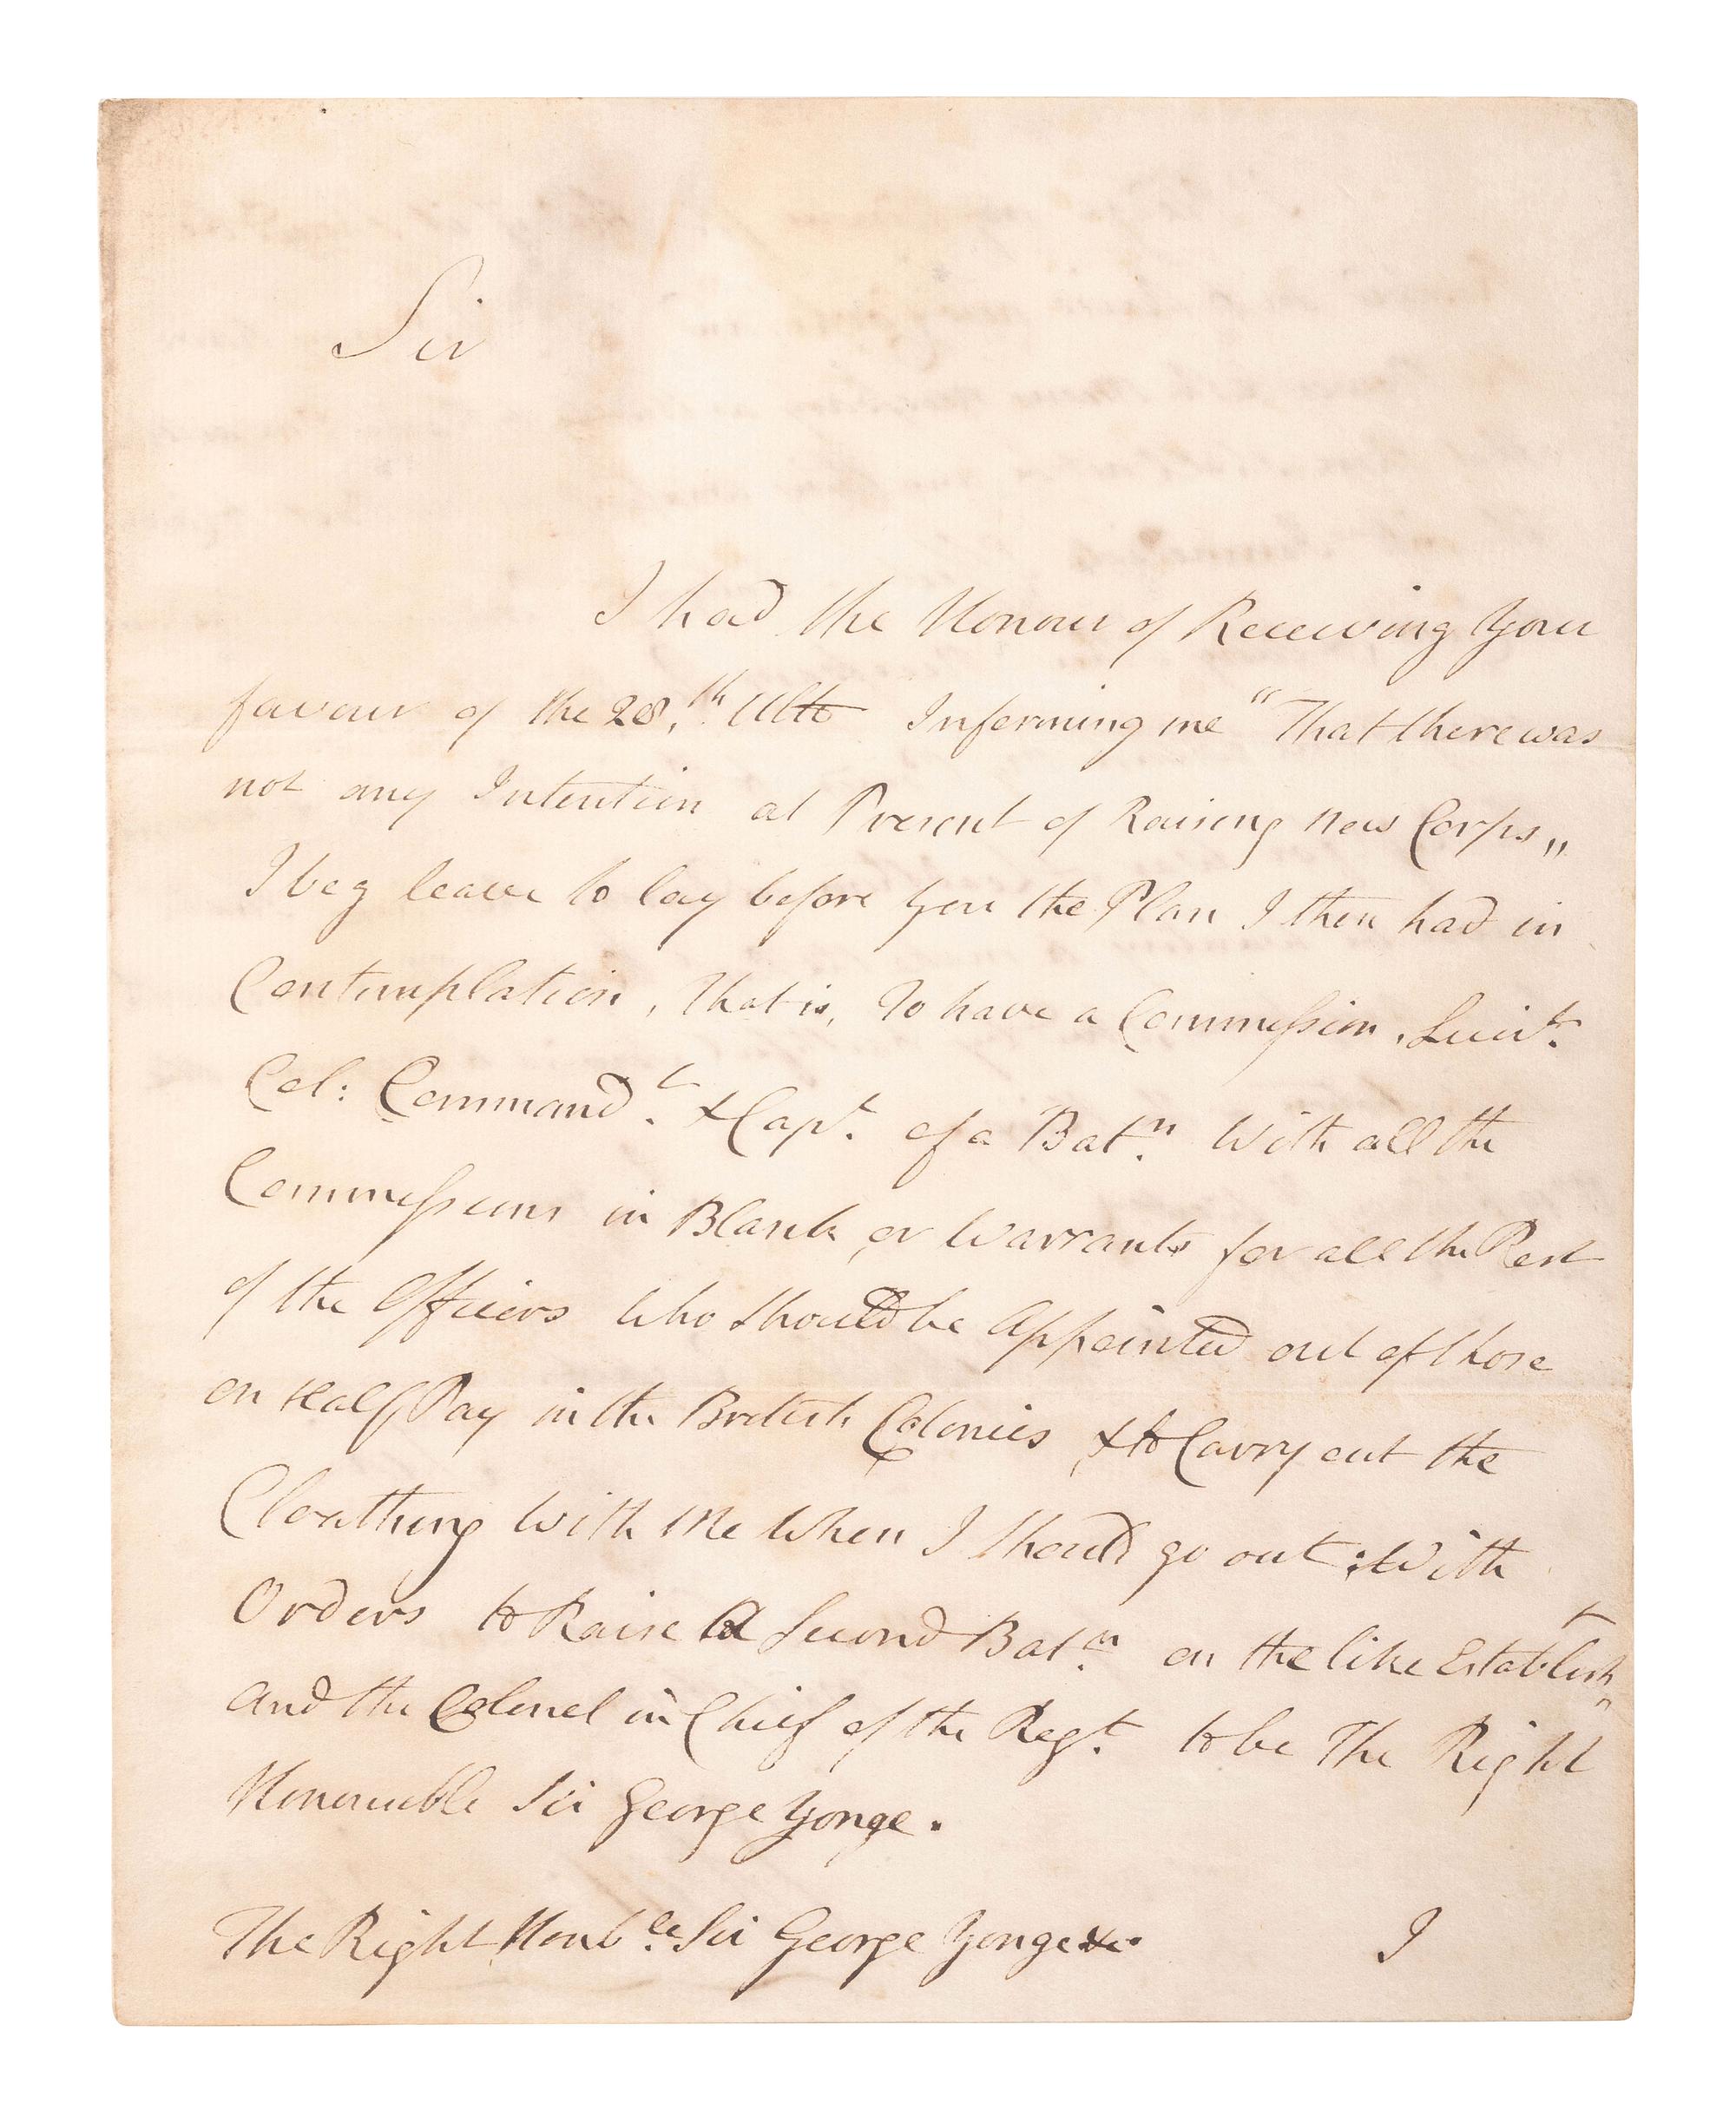 Sir
I had the Honour of Receiving Your
favour of the 28.th Ulto Informing me "That there was
not any Intention at Present of Raising New Corps„
I beg leave to lay before You the Plan I then had in
Contemplation, That is, To have a Commission, Lieut.
Col: Command.t & Capt. of a Bat.n With all the
Commissions in Blank, or Warrants for all the Rest
of the Officers Who should be Appointed out of those
on Half Pay in the British Colonies, & to Carry out the
Cloathing With Me When I should go out; With
Orders to Raise a Second Bat.n on the like Establish.t
And the Colonel in Chief of the Reg.t to be The Right
Honourable Sir George Yonge.
The Right Honb.le Sir George Yonge &c.
I